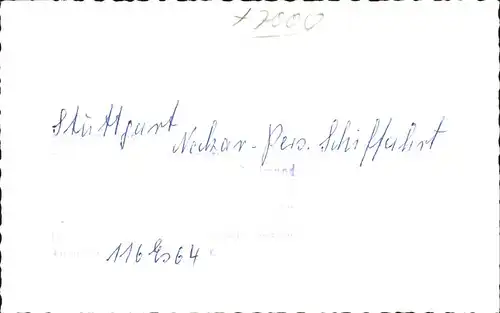 +7000
Stuttgart
Neckar-Pers. Schiffahrt
116Es64